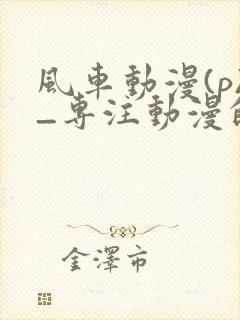 風車動漫(p
_專注動漫
金澤市